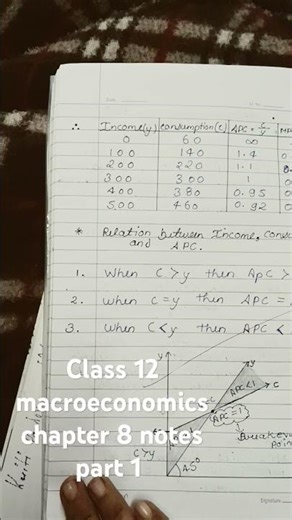 ∴ Income(y) Consumption(c) APC = C/Y
0 60 ∞
100 140 1.4
200 220 1.1
300 300 1
400 380 0.95
500 460 0.92
* Relation between Income,
and APC.
1. When C > y then APC >
2. when C = y then APC =
3. when C < y then APC <
Class 12
macroeconomics
chapter 8 notes
part 1
Y
APC<1
C
APC=1
C>Y
45°